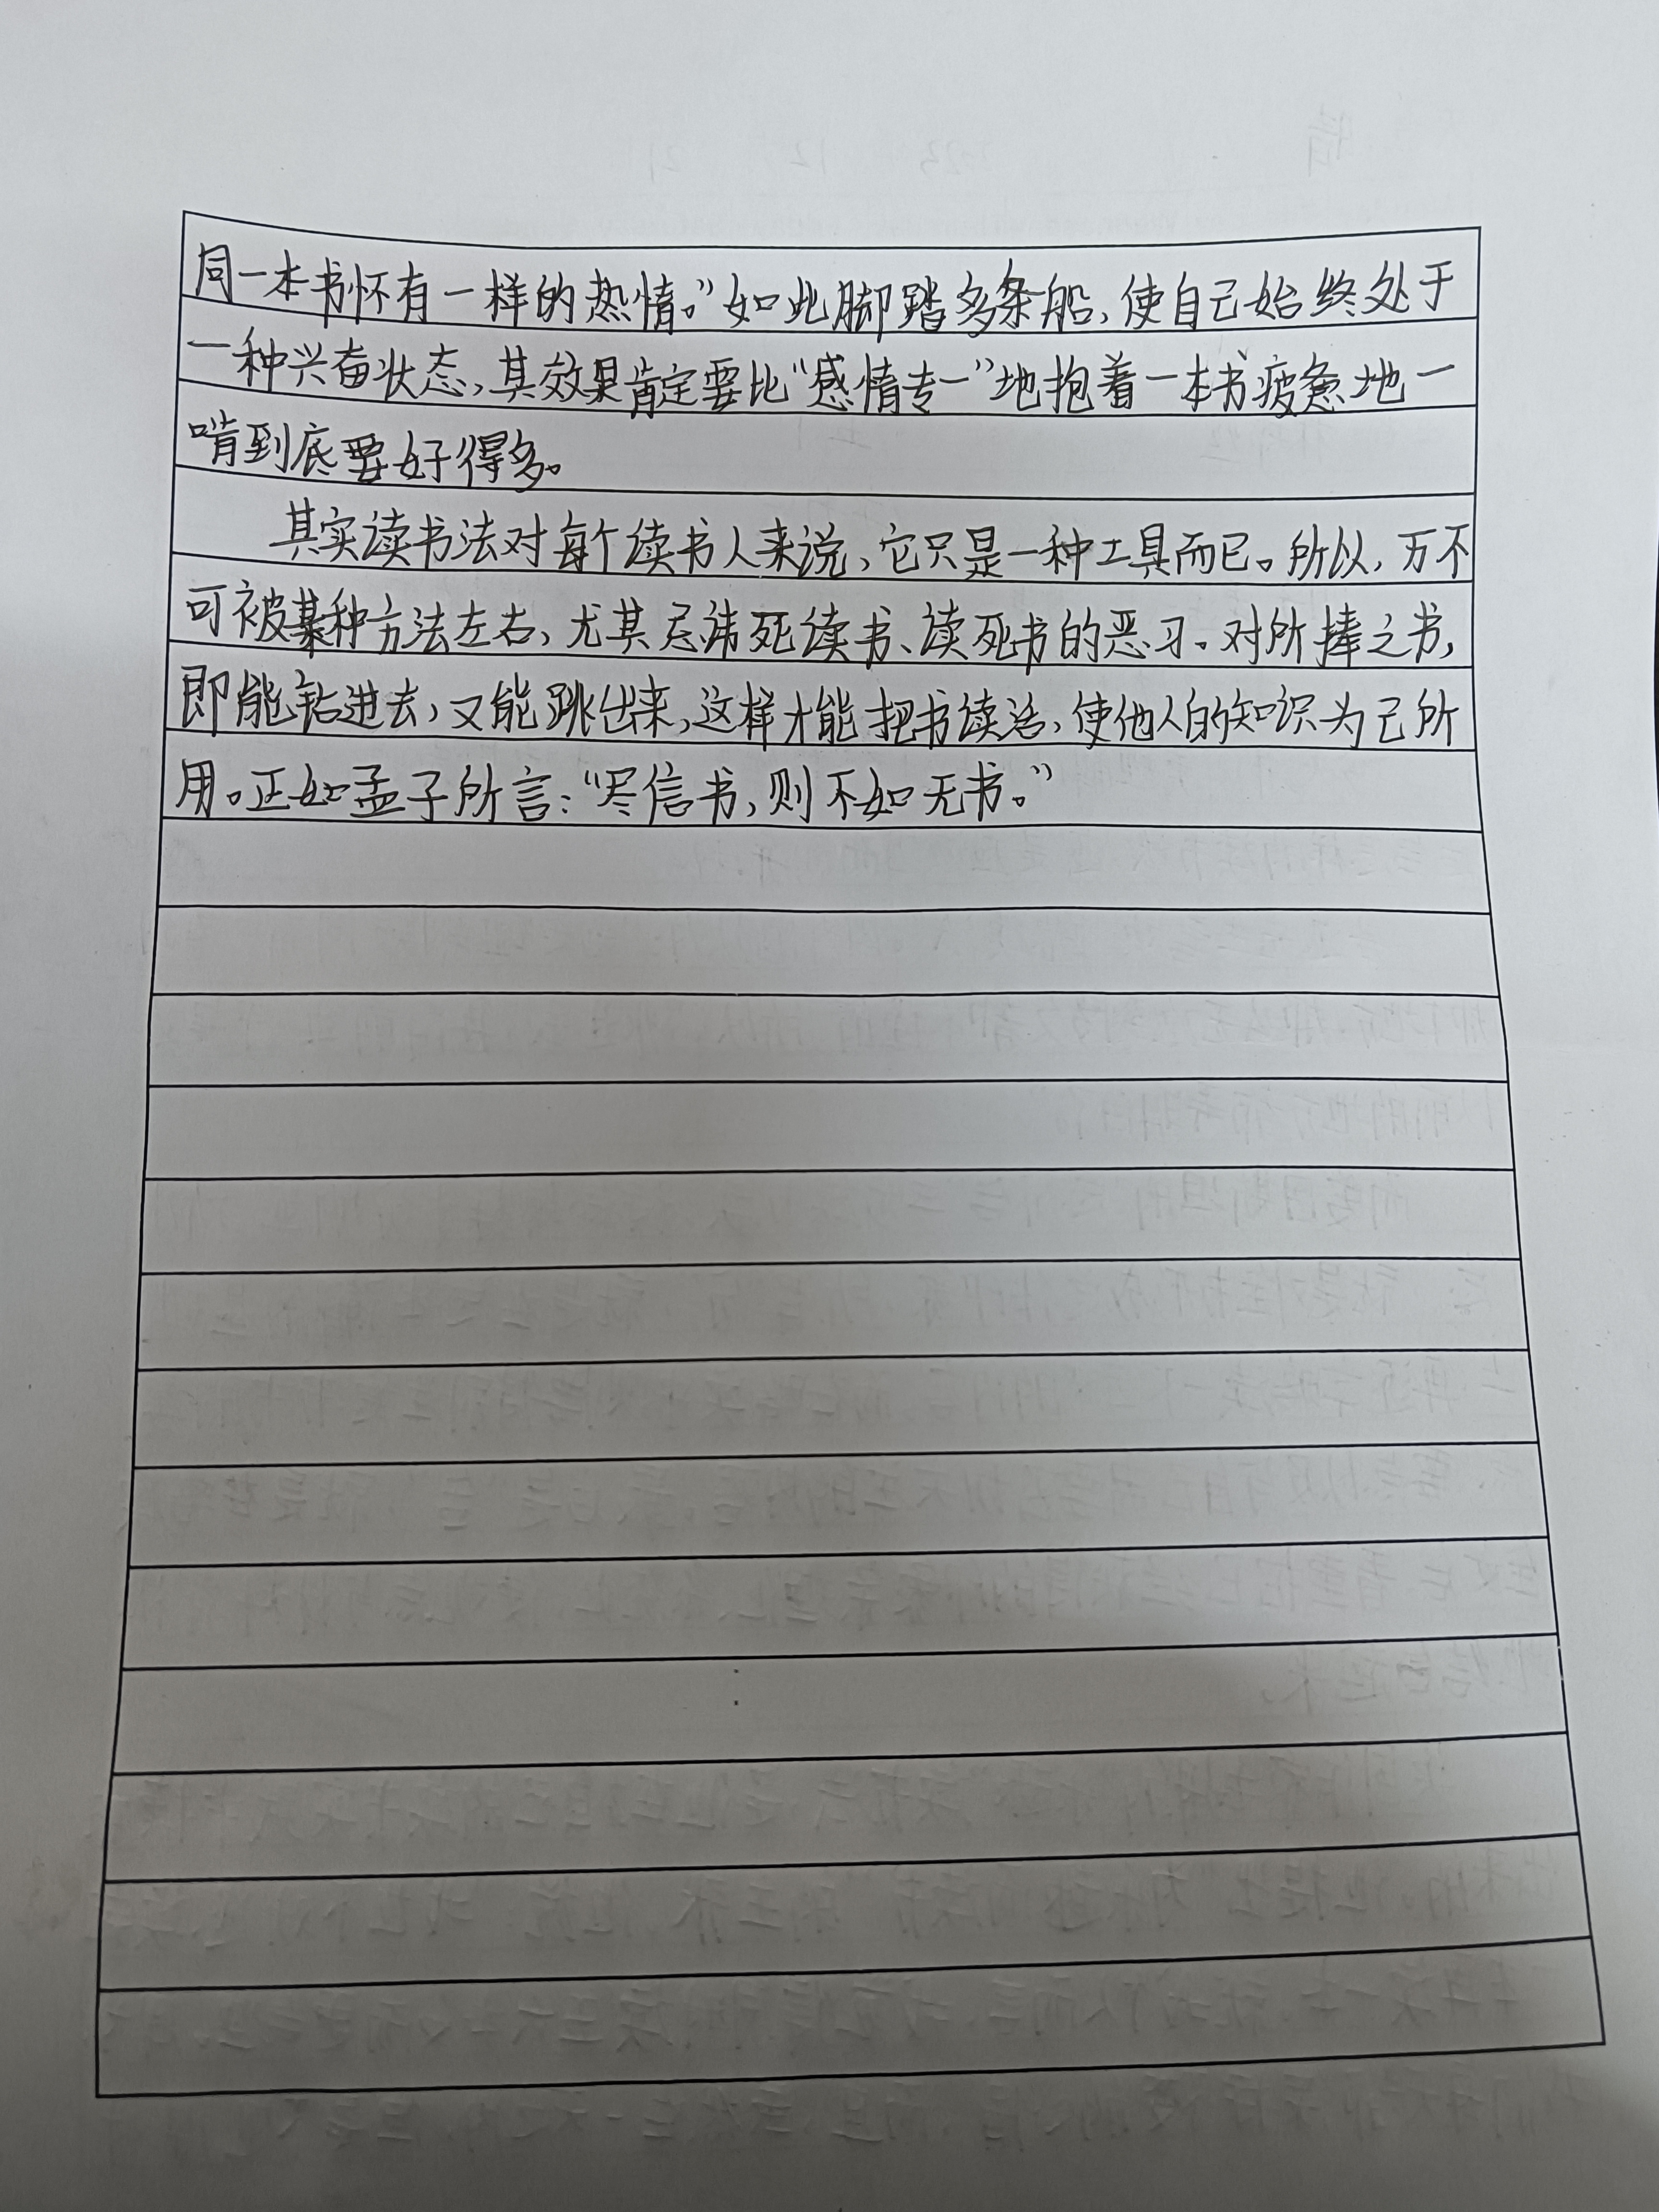 同一本书怀有一样的热情。”如此脚踏多条船，使自己始终处于
一种兴奋状态，其效果肯定要比“感情专一”地抱着一本书疲惫地一
啃到底要好得多。
其实读书法对每个读书人来说，它只是一种工具而已。所以，万不
可被某种方法左右，尤其忌讳死读书、读死书的恶习。对所捧之书，
即能钻进去，又能跳出来，这样才能把书读活，使他人的知识为己所
用。正如孟子所言：“尽信书，则不如无书。”